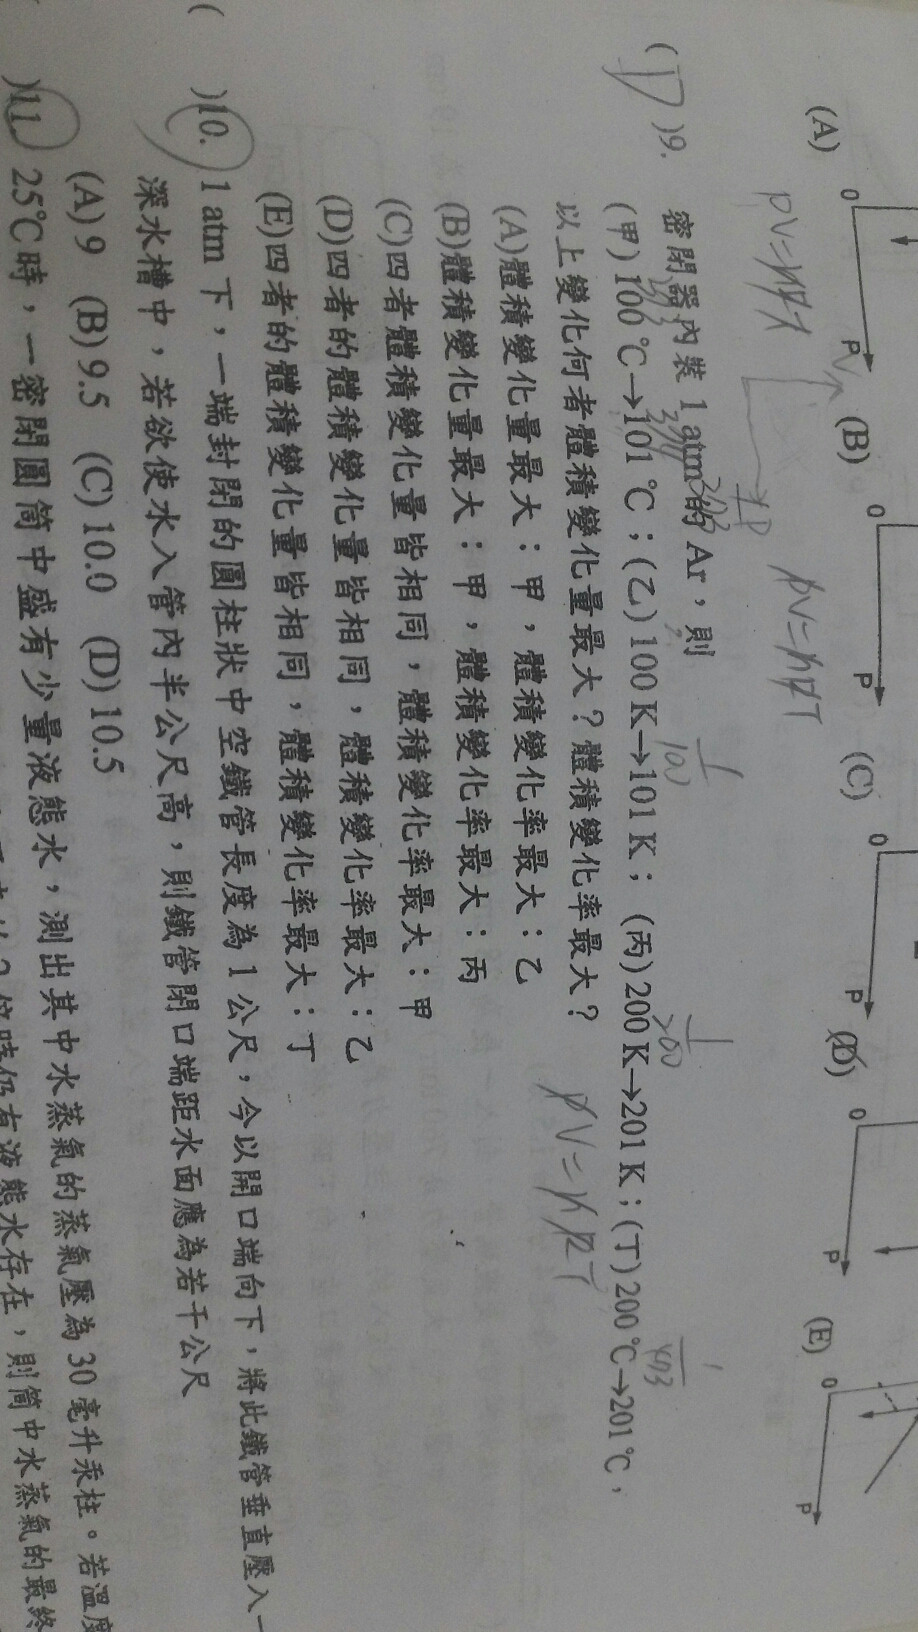 (A) 0 P (B) 0 P (C) 0 P (D) 0 P (E) 0 P
PV=nRT V PV=nRT
(D)9. 密閉器內裝 1 atm 的 Ar，則
(甲)100 ℃→101 ℃；(乙)100 K→101 K； (丙)200 K→201 K；(丁)200 ℃→201 ℃，
以上變化何者體積變化量最大？體積變化率最大？
(A)體積變化量最大：甲，體積變化率最大：乙
(B)體積變化量最大：甲，體積變化率最大：丙
(C)四者體積變化量皆相同，體積變化率最大：甲
(D)四者的體積變化量皆相同，體積變化率最大：乙
(E)四者的體積變化量皆相同，體積變化率最大：丁
1/100 1/200
PV=nRT
( )10. 1 atm 下，一端封閉的圓柱狀中空鐵管長度為 1 公尺，今以開口端向下，將此鐵管垂直壓入一
深水槽中，若欲使水入管內半公尺高，則鐵管閉口端距水面應為若干公尺
(A) 9 (B) 9.5 (C) 10.0 (D) 10.5
( )11. 25℃時，一密閉圓筒中盛有少量液態水，測出其中水蒸氣的蒸氣壓為 30 毫升汞柱。若溫度
2 倍時仍有液態水存在，則筒中水蒸氣的最終